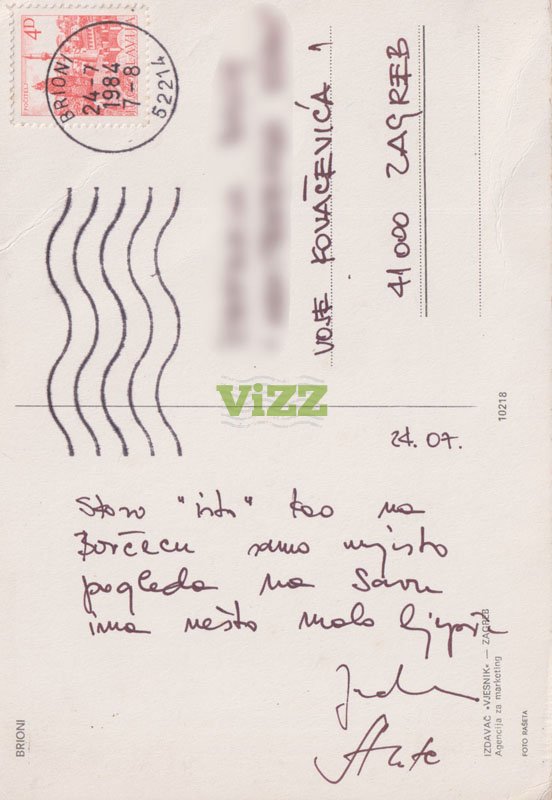 4D
JUGOSLAVIJA
BRIONI
24-7
1984
7-8
52214
VOJE KOVAČEVIĆA 1
41000 ZAGREB
ViZZ
10218
24.07.
Skoro "isto" kao na
Borčecu samo mjesto
pogleda na Savu
ima nešto malo ljepši
Ante
BRIONI
IZDAVAČ »VJESNIK« — ZAGREB
Agencija za marketing
FOTO RAŠETA